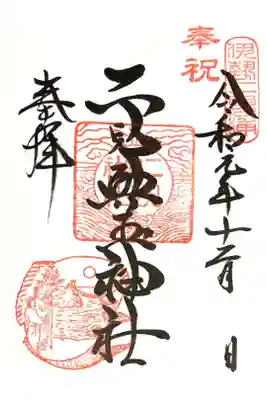 伊勢二見浦
奉祝
令和元年十二月 日
二見興玉神社
奉拝